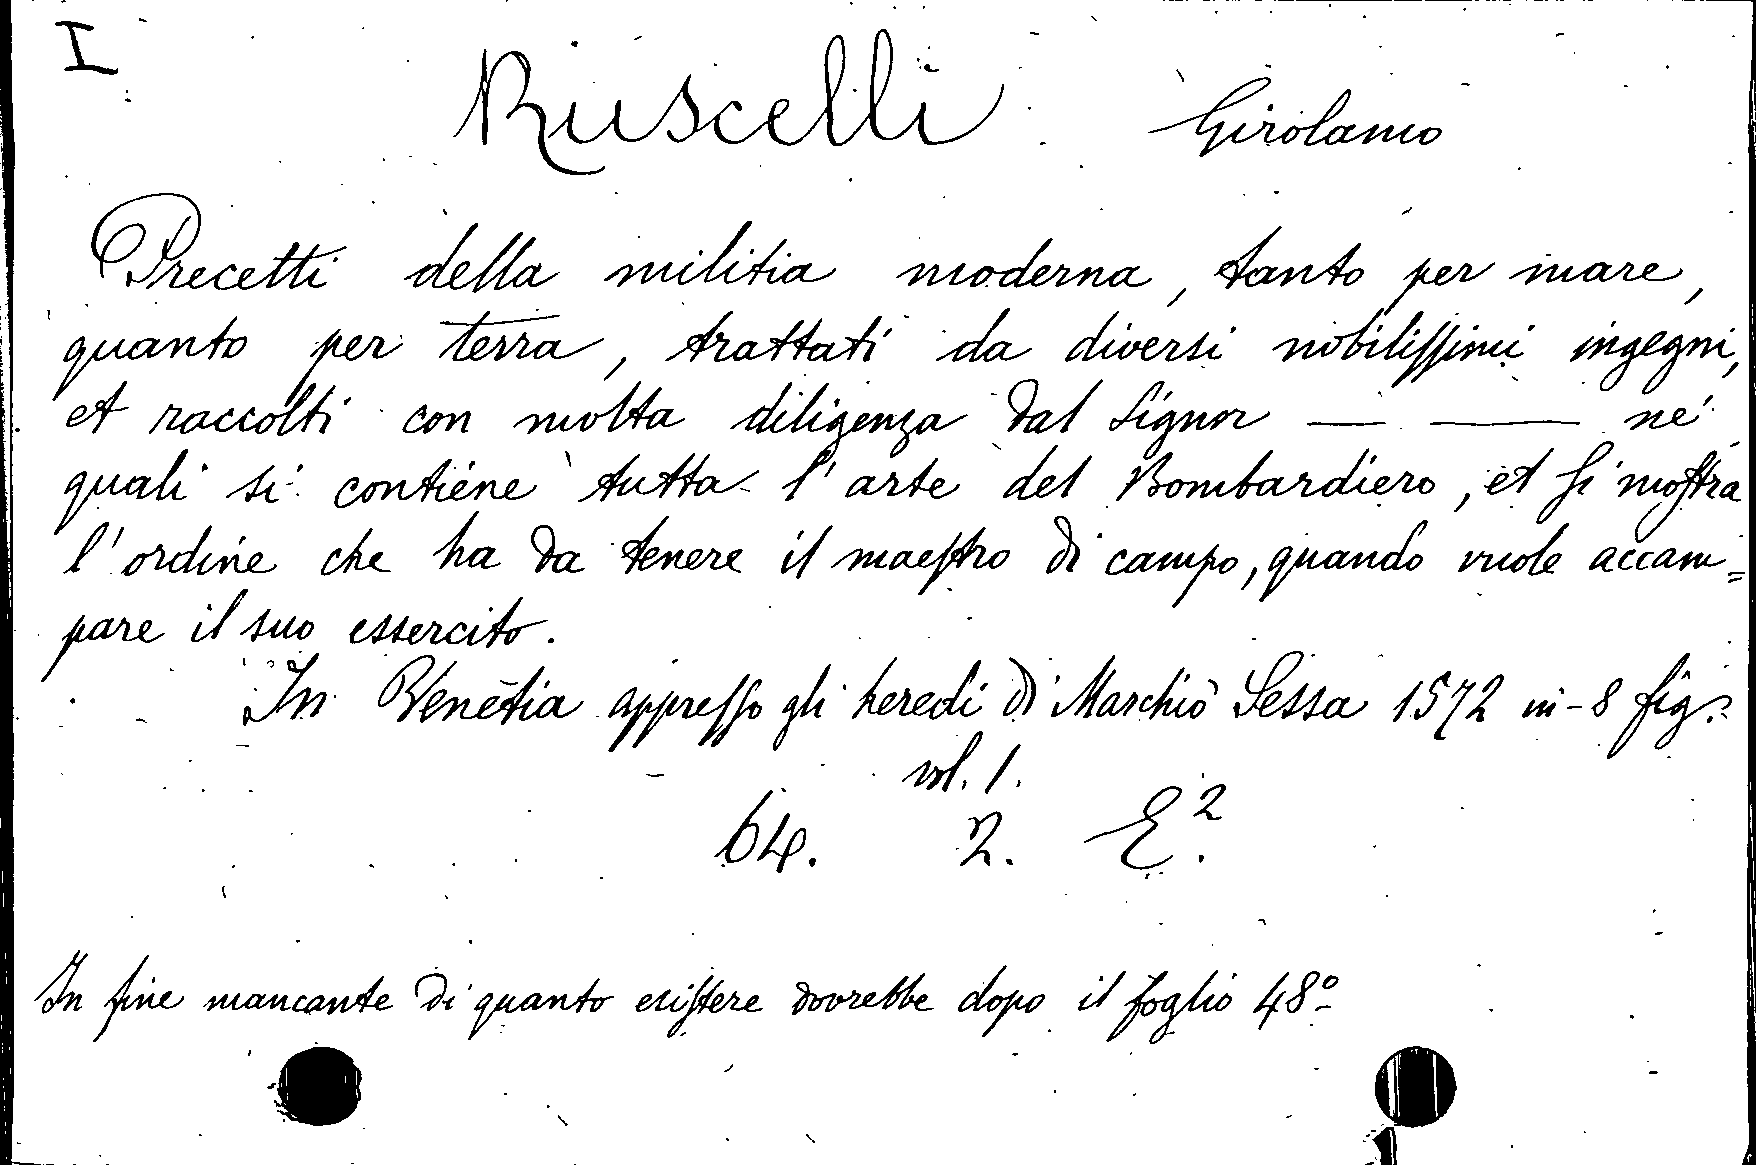 I
Ruscelli Girolamo
Precetti della militia moderna, tanto per mare,
quanto per terra, trattati da diversi nobilissimi ingegni,
et raccolti con molta diligenza dal Signor — — ne'
quali si contiene tutta l'arte del Bombardiero, et si mostra
l'ordine che ha da tenere il maestro di campo, quando vuole accam=
pare il suo essercito.
In Venetia appresso gli heredi di Marchiò Sessa 1572 in-8 fig.
vol. 1.
64. 2. E.²
In fine mancante di quanto esistere dovrebbe dopo il foglio 48º